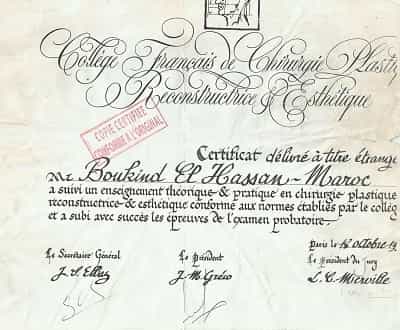 Collège Français de Chirurgie Plasti
Reconstructrice & Esthétique
COPIE CERTIFIÉE
CONFORME A L'ORIGINAL
Certificat délivré à titre étrange
Boukind El Hassan - Maroc
a suivi un enseignement théorique & pratique en chirurgie plastique
reconstructrice & esthétique conforme aux normes établies par le collèg
et a subi avec succès les épreuves de l'examen probatoire.
Paris le octobre
Le Secrétaire Général
Le Président
Le Président du Jury